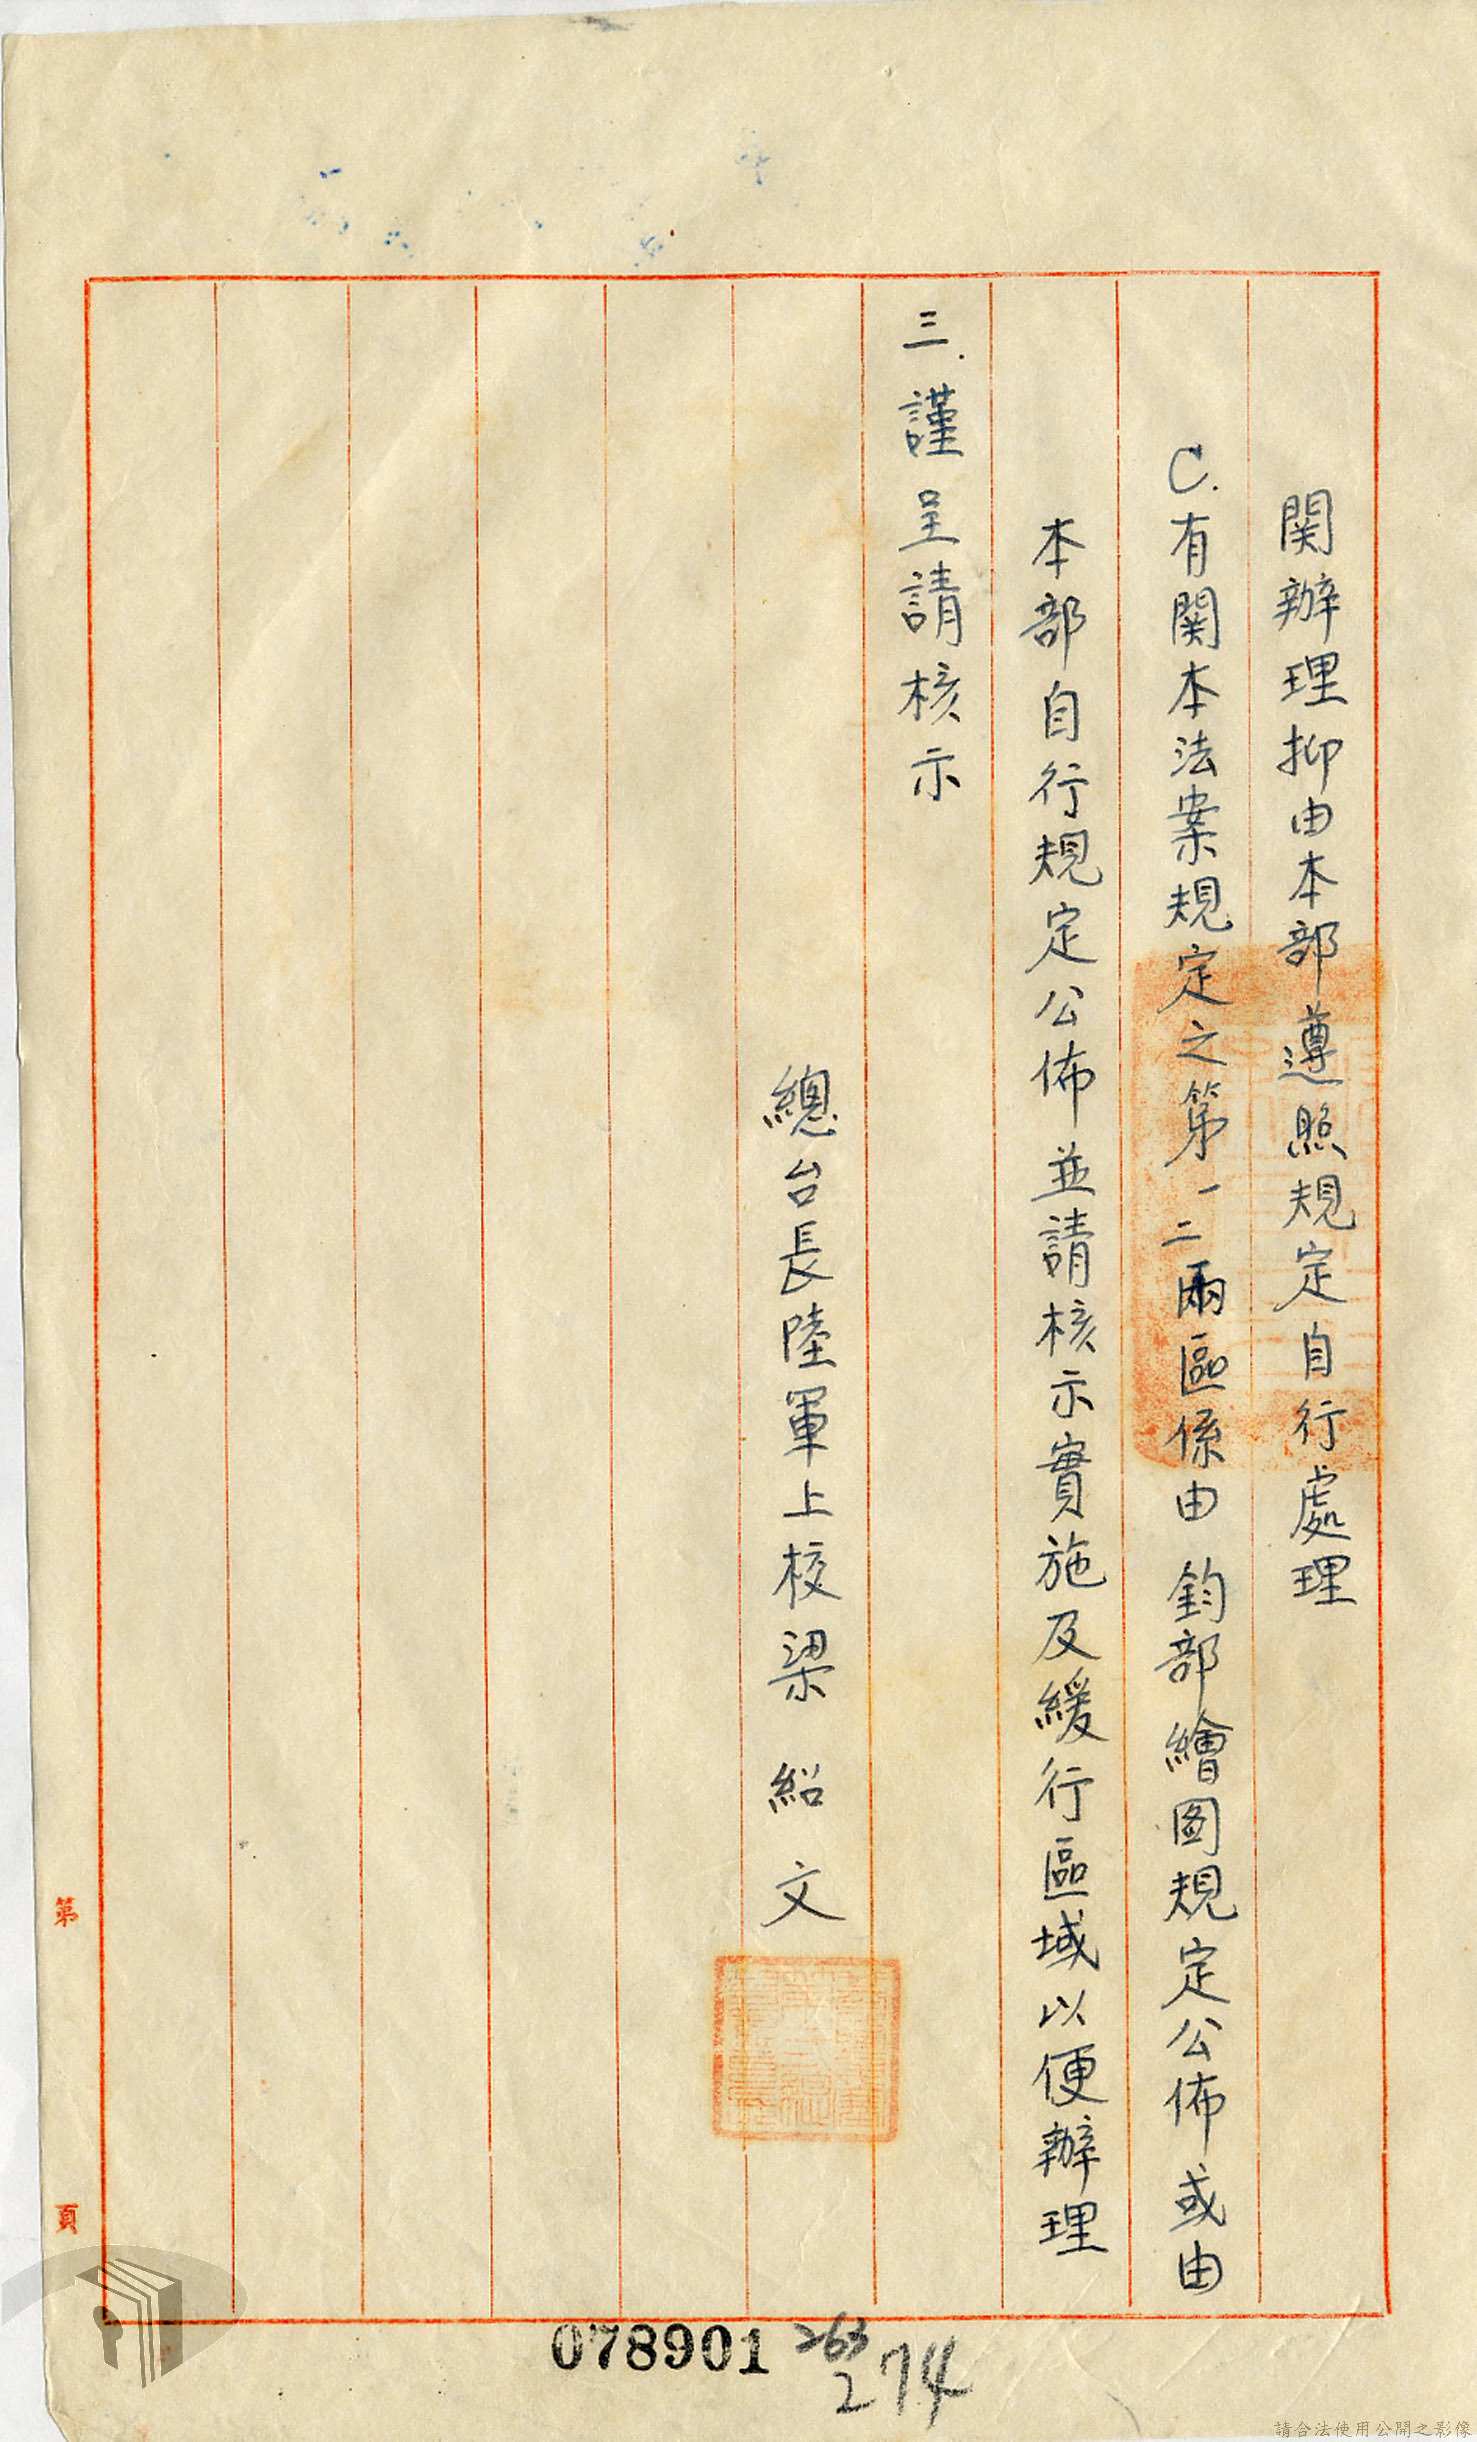 関辦理抑由本部遵照規定自行處理
C.有関本法案規定之第一二兩區係由 鈞部繪图規定公佈或由
本部自行規定公佈並請核示實施及緩行區域以便辦理
三.謹呈請核示
總台長陸軍上校梁紹文
第 頁
078901
263
274
請合法使用公開之影像